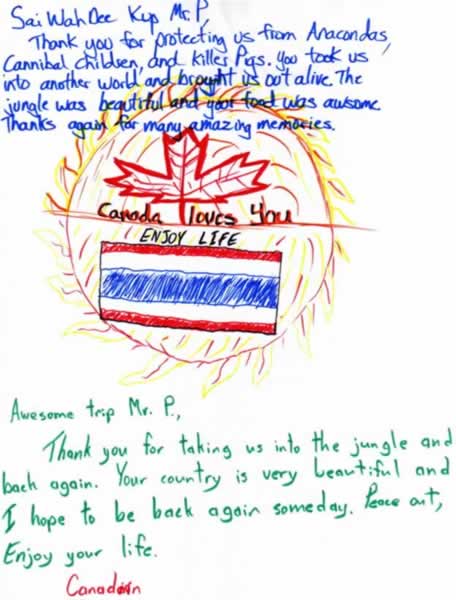 Sai Wah Dee Kup Mr. P,
Thank you for protecting us from Anacondas,
Cannibal children, and killer Pigs. You took us
into another world and brought us out alive. The
jungle was beautiful and your food was awsome.
Thanks again for many amazing memories.
Canada loves You
ENJOY LIFE
Awesome trip Mr. P.,
Thank you for taking us into the jungle and
back again. Your country is very beautiful and
I hope to be back again someday. Peace out,
Enjoy your life.
Canadian